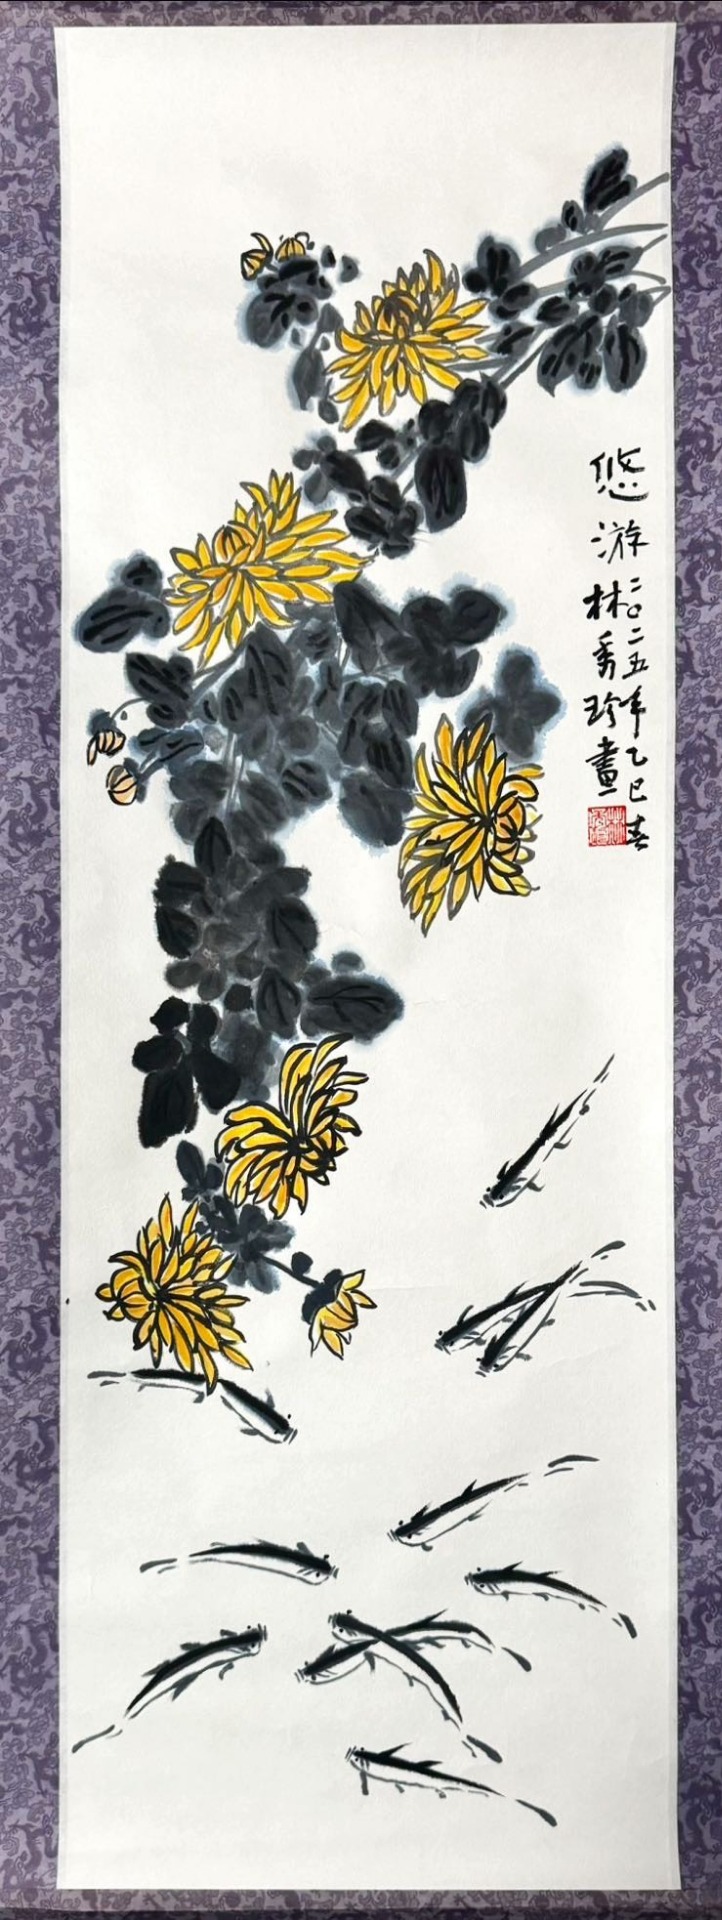 悠游
二〇二五年乙巳春
林秀珍畫